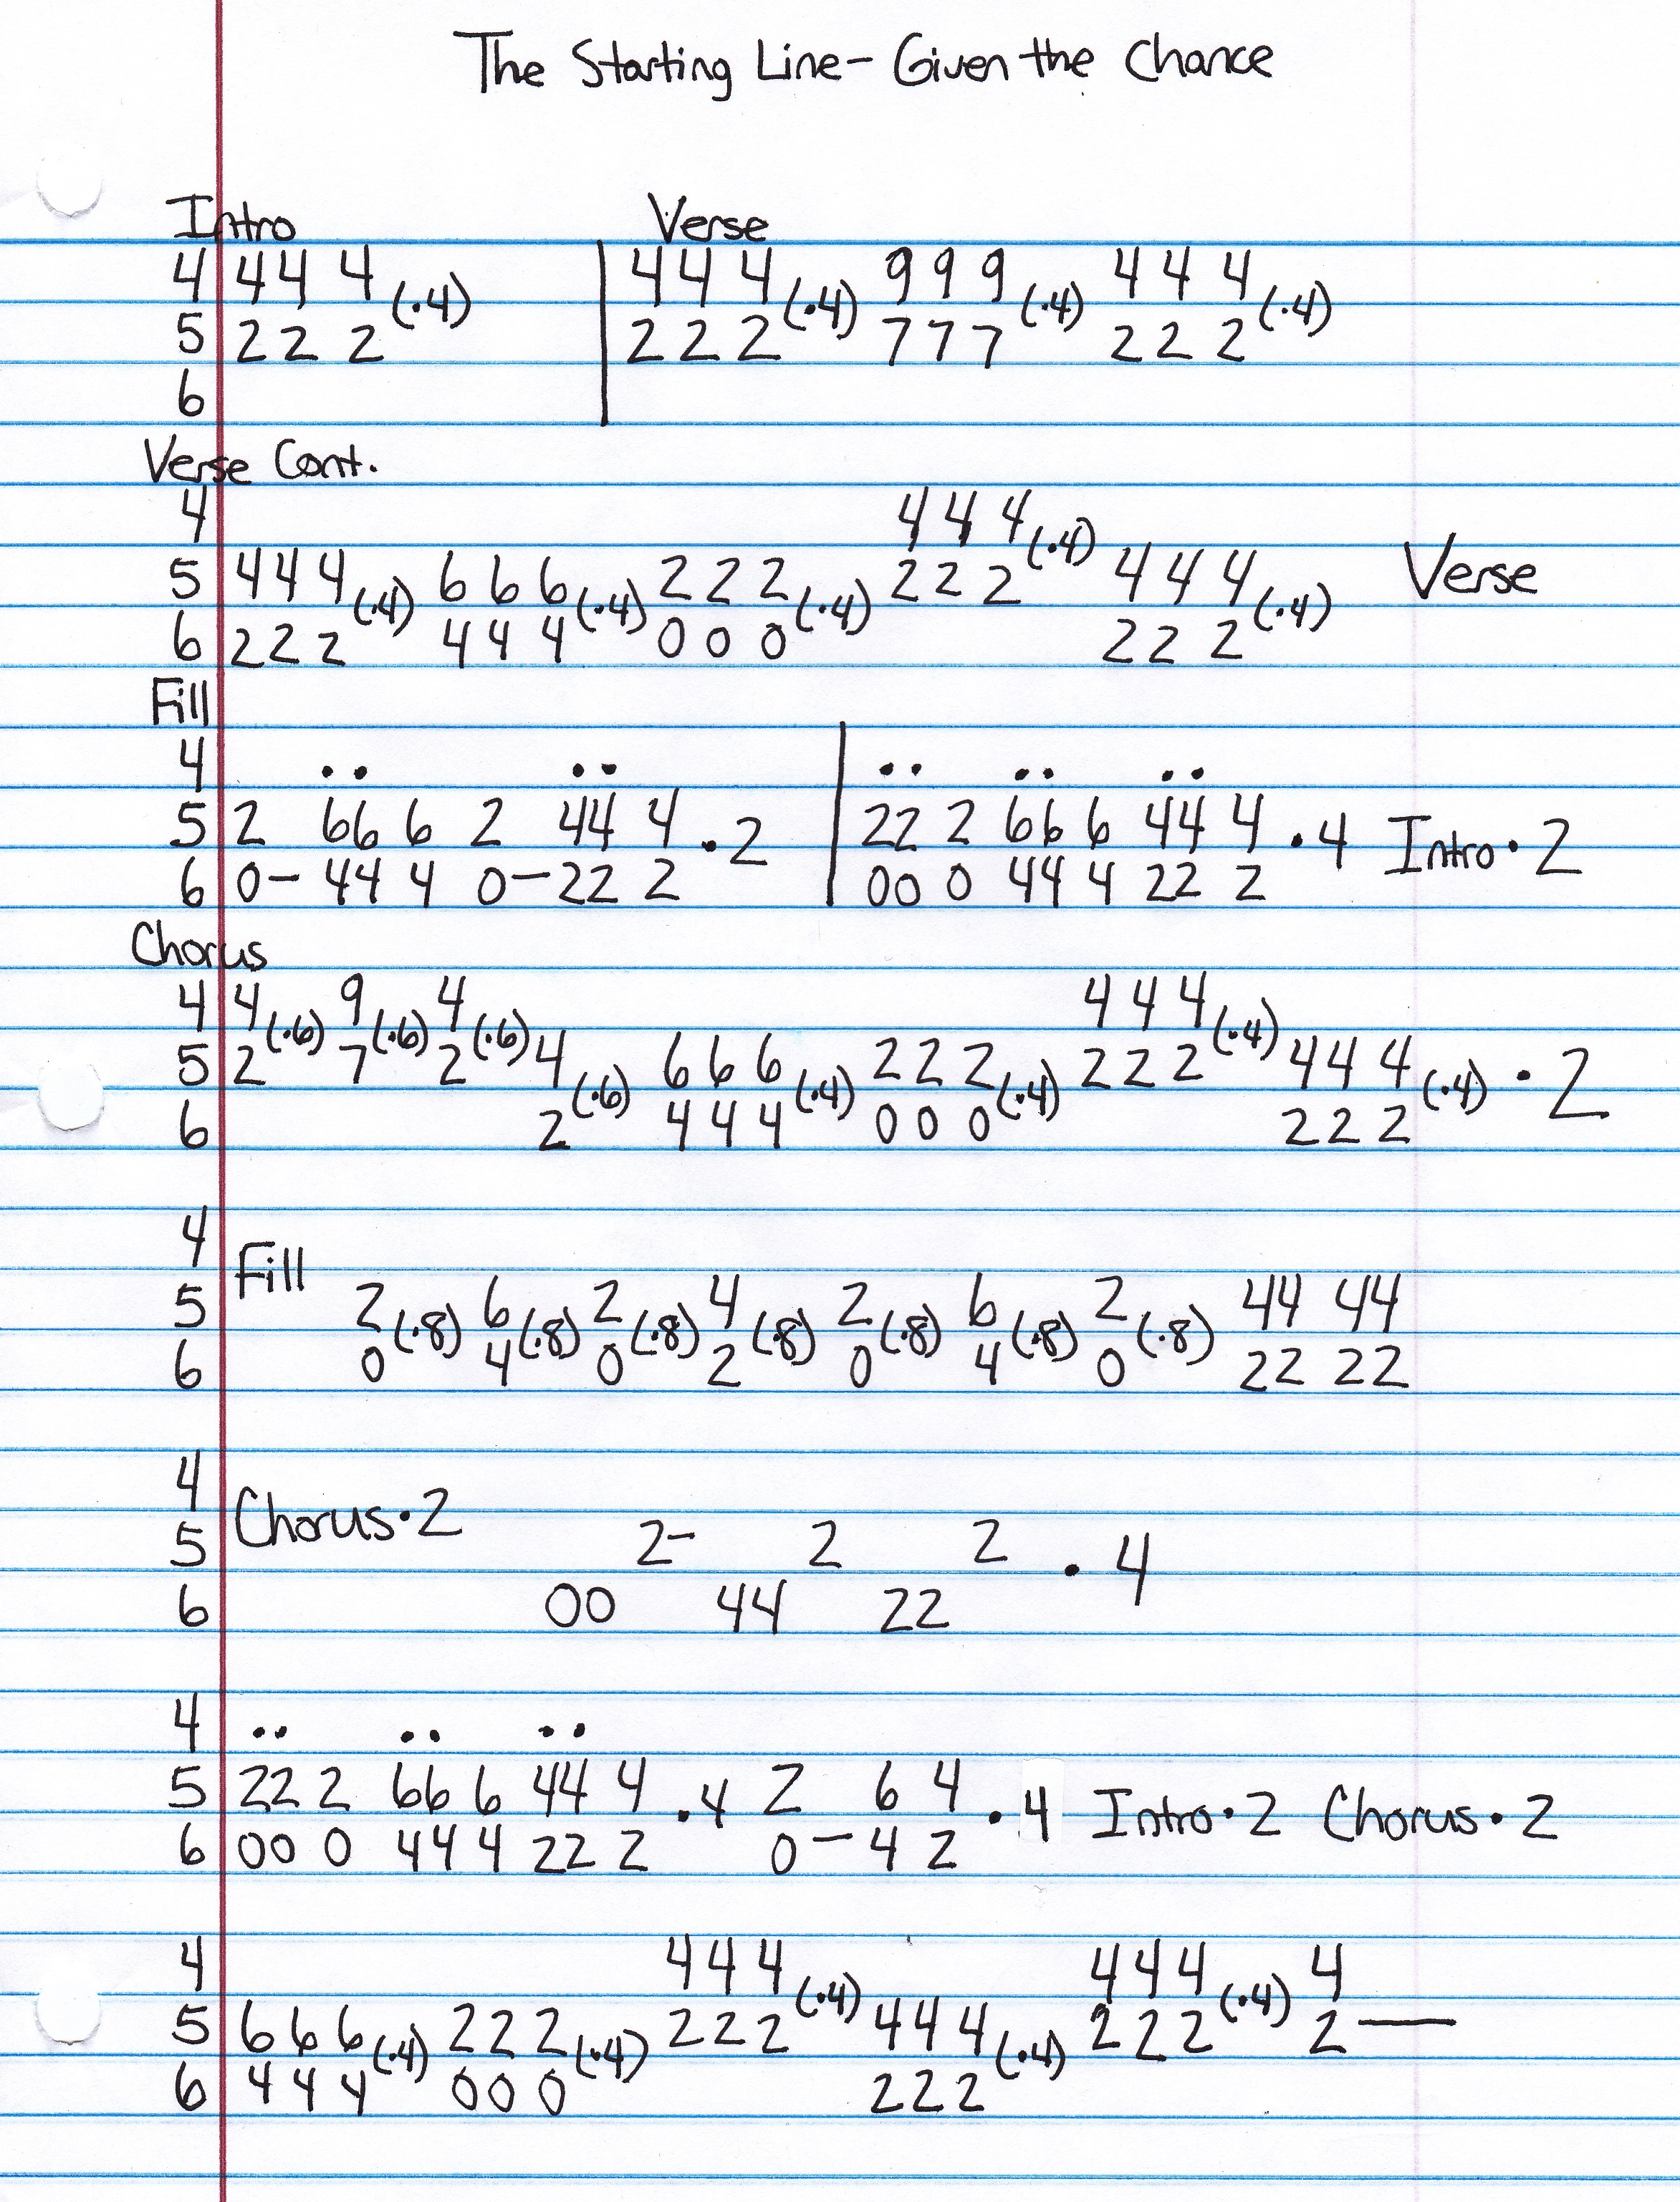 The Starting Line- Given the Chance
Intro Verse
4 4 4 4 (·4) 4 4 4 (·4) 9 9 9 (·4) 4 4 4 (·4)
5 2 2 2 2 2 2 7 7 7 2 2 2
6
Verse Cont.
4 4 4 4 (·4)
5 4 4 4 (·4) 6 6 6 (·4) 2 2 2 (·4) 2 2 2 4 4 4 (·4) Verse
6 2 2 2 4 4 4 0 0 0 2 2 2
Fill
4 ·· ·· ·· ·· ··
5 2 66 6 2 44 4 ·2 22 2 66 6 44 4 ·4 Intro·2
6 0- 44 4 0- 22 2 00 0 44 4 22 2
Chorus
4 4 (·6) 9 (·6) 4 (·6) 4 4 4 (·4)
5 2 7 2 4 (·6) 6 6 6 (·4) 2 2 2 (·4) 2 2 2 4 4 4 (·4) ·2
6 2 4 4 4 0 0 0 2 2 2
4
Fill
5 2 (·8) 6 (·8) 2 (·8) 4 (·8) 2 (·8) 6 (·8) 2 (·8) 44 44
6 0 4 0 2 0 4 0 22 22
4
Chorus·2
5 2- 2 2 ·4
6 00 44 22
4 ·· ·· ··
5 22 2 66 6 44 4 ·4 2 6 4 ·4 Intro·2 Chorus·2
6 00 0 44 4 22 2 0- 4 2
4 4 4 4 (·4) 4 4 4 (·4) 4
5 6 6 6 (·4) 2 2 2 (·4) 2 2 2 4 4 4 (·4) 2 2 2 2—
6 4 4 4 0 0 0 2 2 2